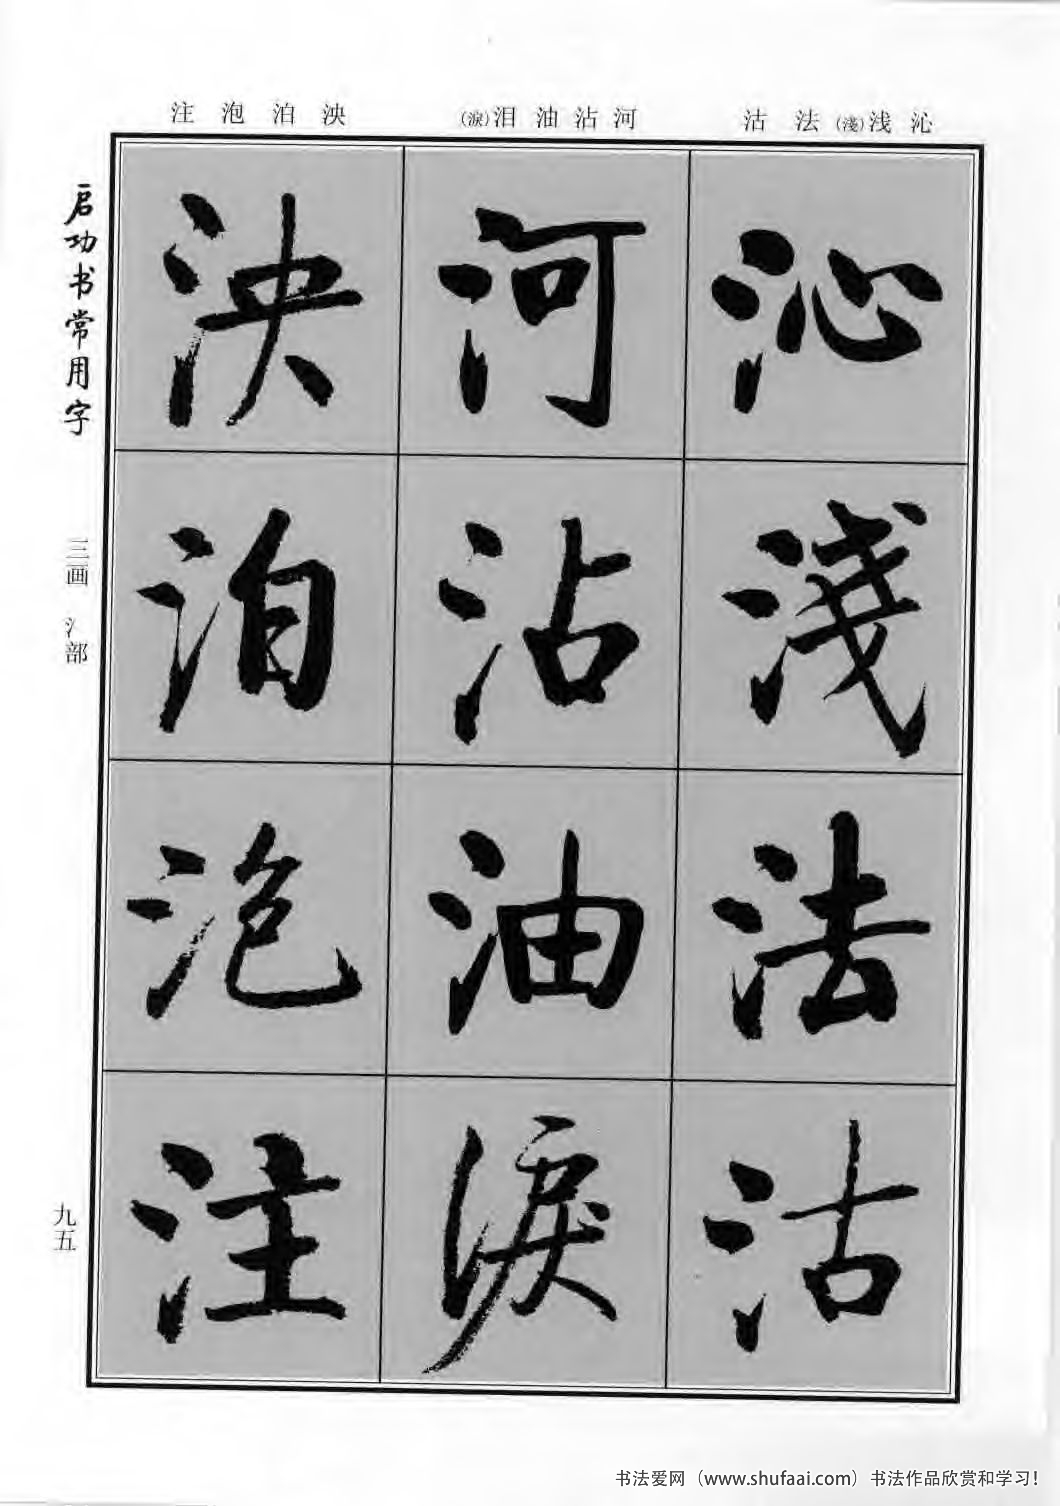 沁浅(淺)法沽
河沾油泪(淚)
泱泊泡注
沁淺法沽
河沾油淚
泱泊泡注
启功书常用字
三画 氵部
九五
书法爱网（www.shufaai.com）书法作品欣赏和学习！